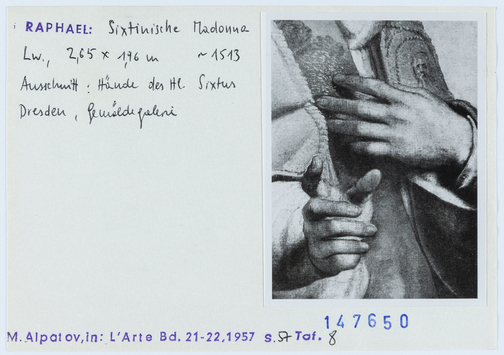 RAPHAEL: Sixtinische Madonna
Lw., 2,65 x 1,96 m ~ 1513
Ausschnitt: Hände des Hl. Sixtus
Dresden, Gemäldegalerie
147650
M. Alpatov, in: L'Arte Bd. 21-22, 1957 S. 57 Taf. 8